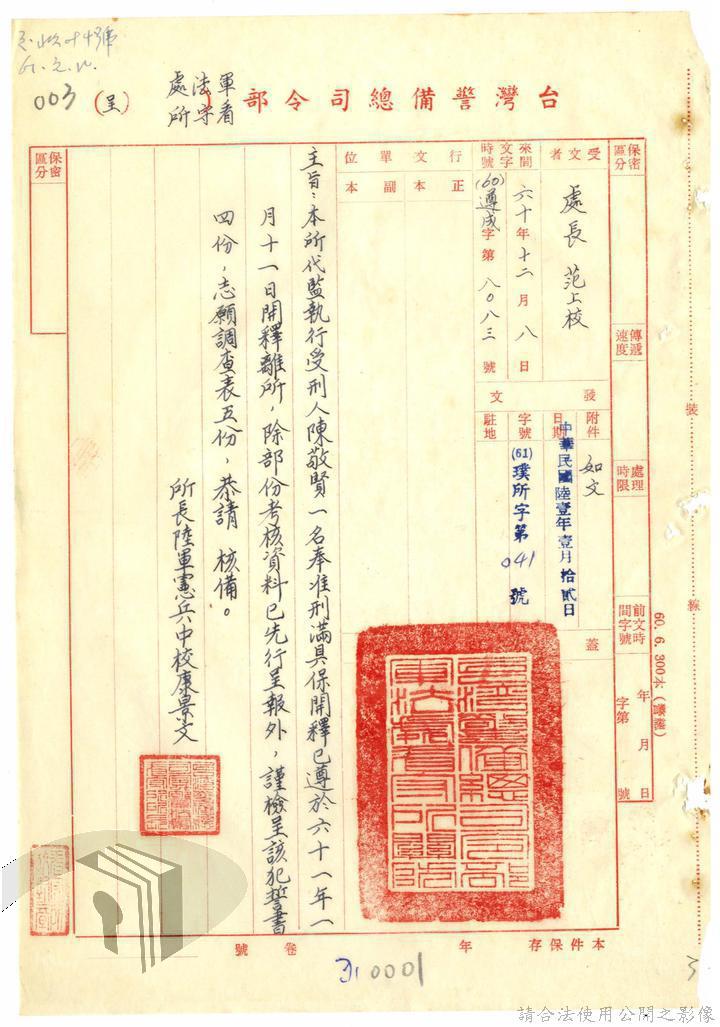 61.2.11.
003
台灣警備總司令部
軍法處
看守所
(呈)
保密區分
受文者
處長 范上校
來文時間字號
六十年十二月八日
(60)遵成字第八〇八三號
行文單位
正本
副本
保密區分
傳遞速度
處理時限
前文時間字號
年 月 日
字第 號
發文
附件
如文
日期
中華民國陸壹年壹月拾貳日
字號
(61)璞所字第041號
駐地
蓋
主旨：本所代監執行受刑人陳敬賢一名奉准刑滿具保開釋已遵於六十一年一
月十一日開釋離所，除部份考核資料已先行呈報外，謹檢呈該犯誓書
四份，志願調查表五份，恭請 核備。
所長陸軍憲兵中校康景文
裝
線
60. 6. 300本
本件保存 年
卷 號
0001
3
請合法使用公開之影像